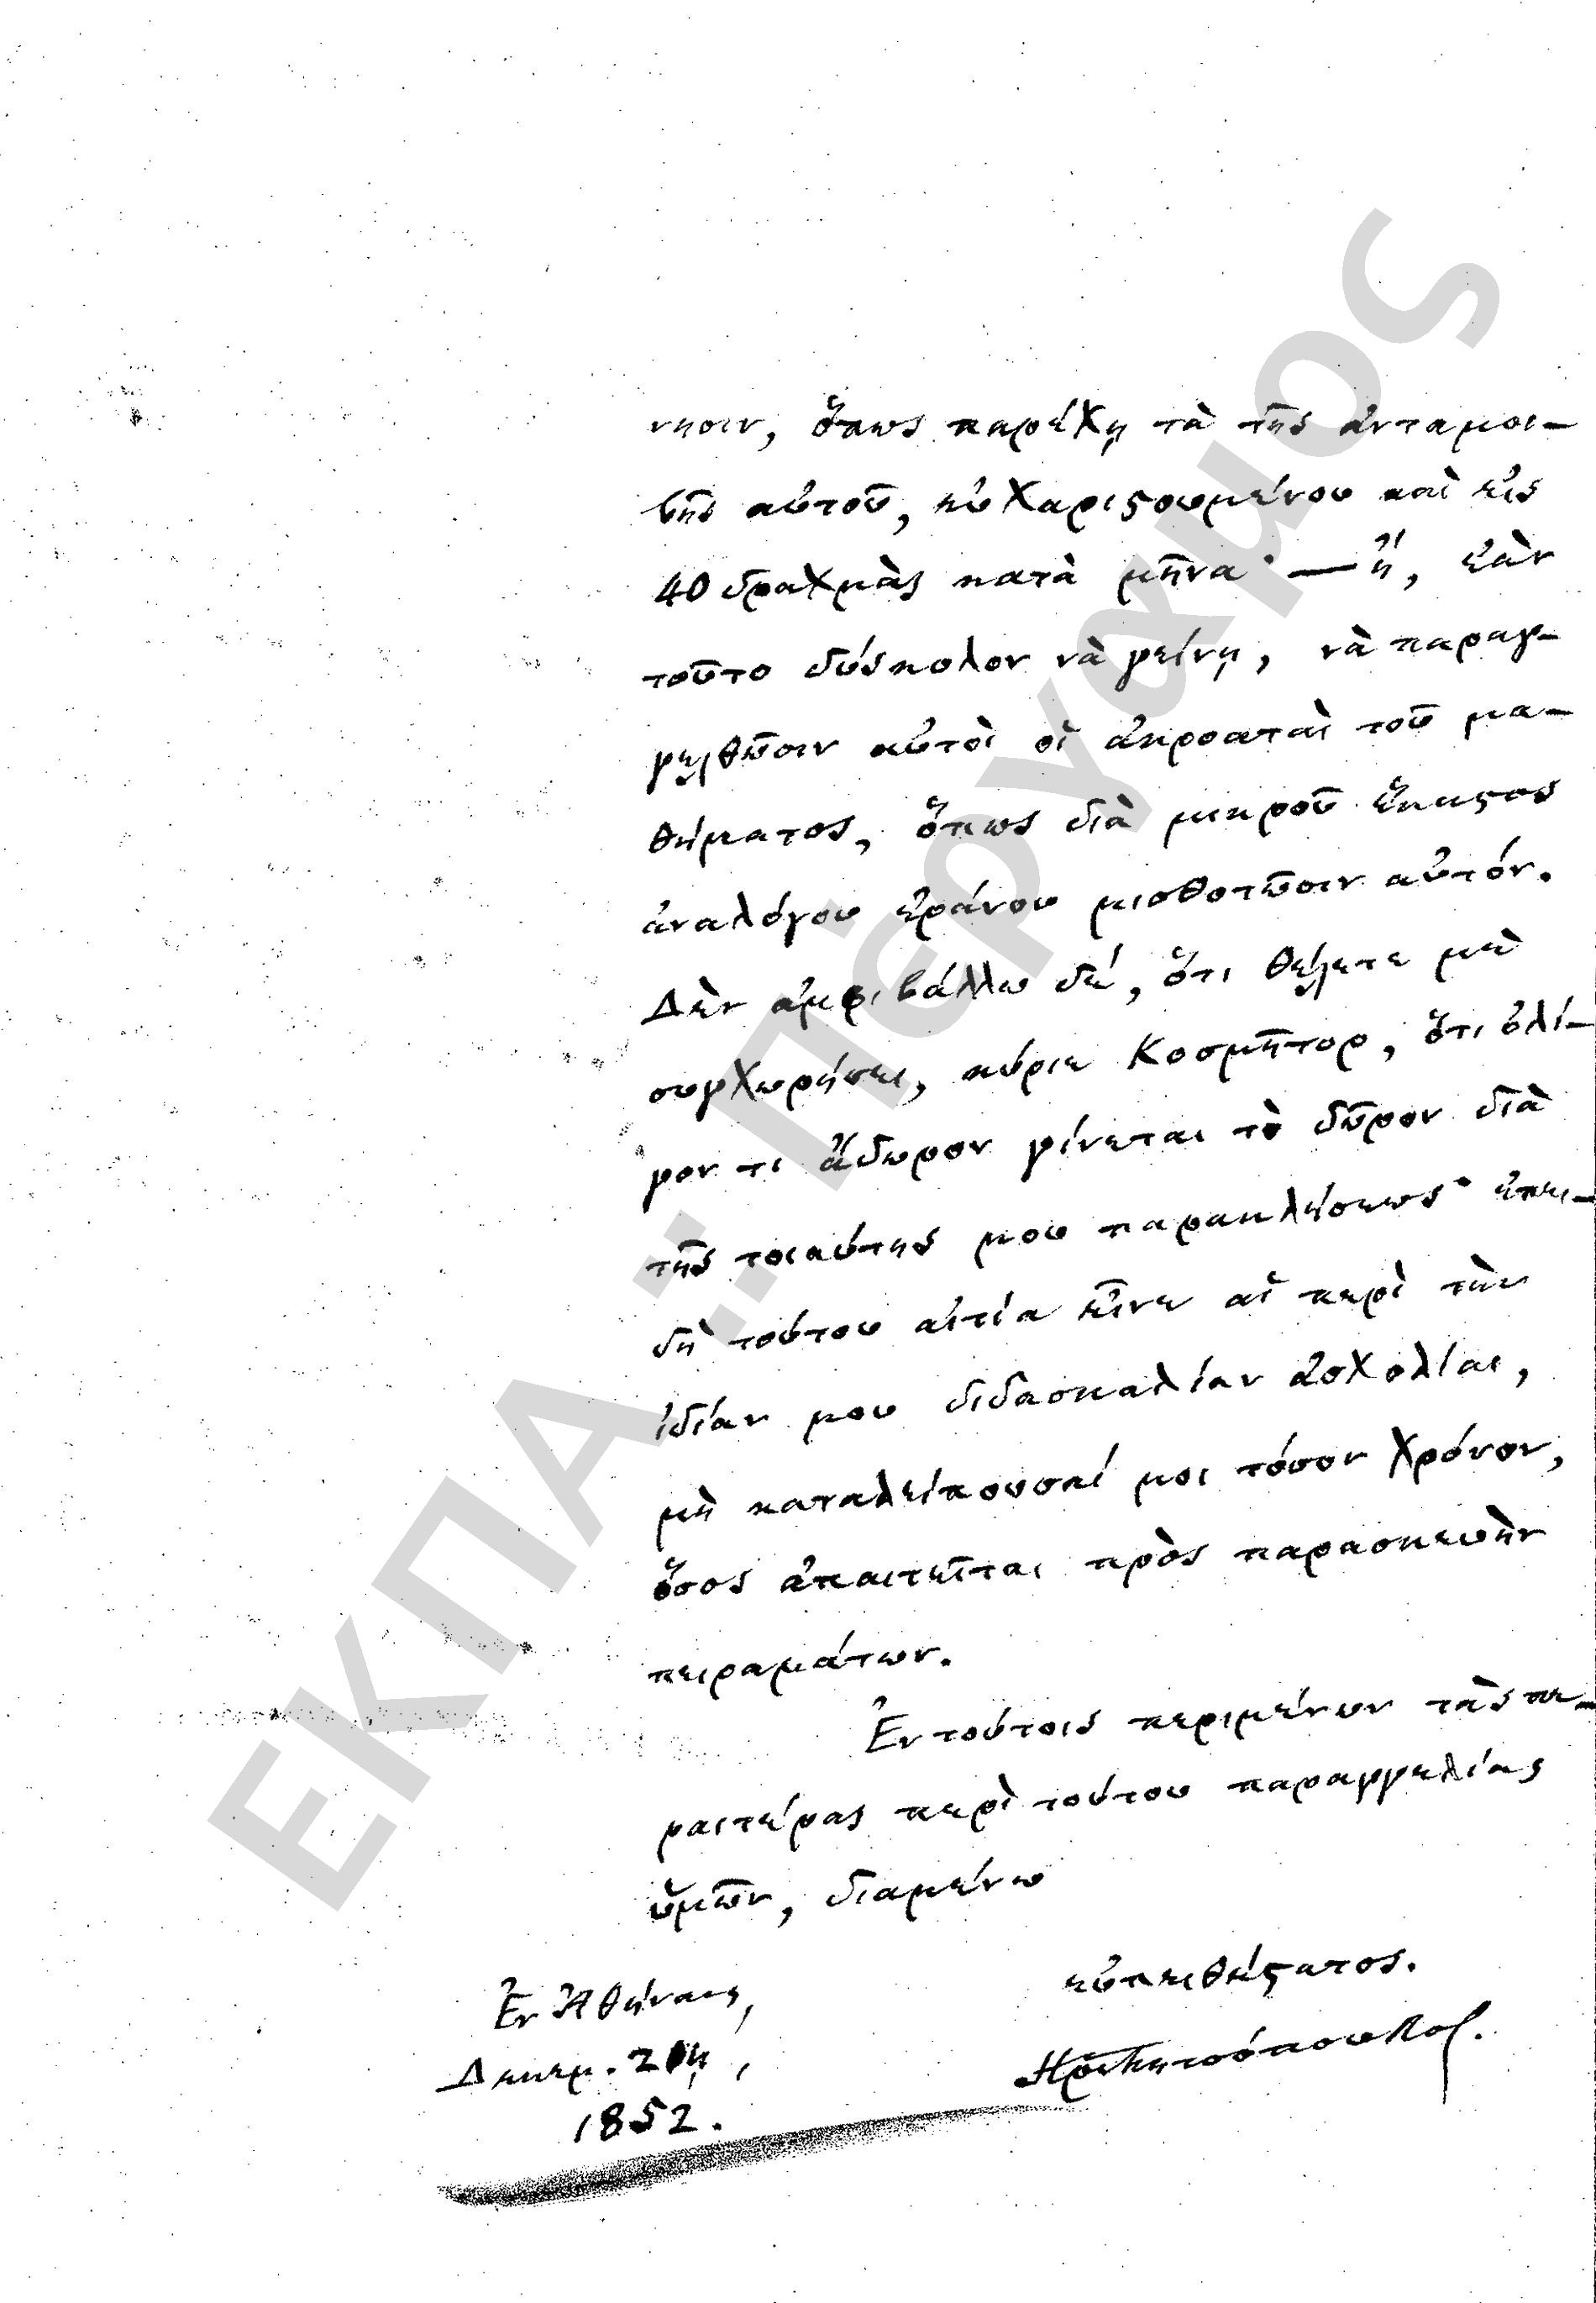 νησιν, ὅπως παρέχῃ τὰ τῆς ἀνταμοι-
βῆς αὐτοῦ, εὐχαριςουμένου καὶ εἰς
40 δραχμὰς κατὰ μῆνα· — ἢ, ἐὰν
τοῦτο δύςκολον νὰ γείνῃ, νὰ παραγ-
γελθῶσιν αὐτοὶ οἱ ἀκροαταὶ τοῦ μα-
θήματος, ὅπως διὰ μικροῦ ἕκαςος
ἀναλόγου ἐράνου μισθοτῶσιν αὐτόν.
Δὲν ἀμφιβάλλω δέ, ὅτι θέλετε μὲ
συγχωρήσει, κύριε Κοσμῆτορ, ὅτι ὀλί-
γον τι ἄδωρον γίνεται τὸ δῶρον διὰ
τῆς τοιαύτης μου παρακλήσεως· ἐπει-
δὴ τούτου αἰτία εἶνε αἱ περὶ τὴν
ἰδίαν μου διδασκαλίαν ἀσχολίαι,
μὴ καταλείπουσαί μοι τόσον χρόνον,
ὅσος ἀπαιτεῖται πρὸς παρασκευὴν
πειραμάτων.
Ἐν τούτοις περιμένων τὰς πε-
ραιτέρας περὶ τούτου παραγγελίας
ὑμῶν, διαμένω
εὐπειθέςατος.
Ἐν Ἀθήναις,
Δεκεμ.
1852.
ΕΚΠΑ :: Πέργαμος